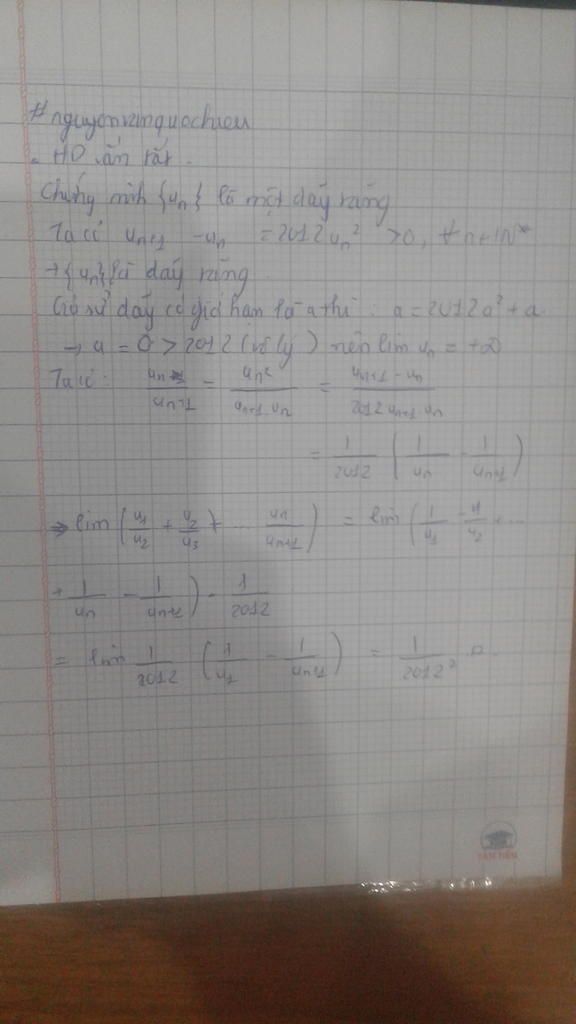 #nguyenkimquochieu
. HD vắn tắt.
Chứng minh {uₙ} là một dãy tăng
Ta có uₙ₊₁ - uₙ = 2012uₙ² > 0, ∀n∈ℕ*
→ {uₙ} là dãy tăng.
Giả sử dãy có giới hạn là a thì: a = 2012a² + a
→ a = 0 > 2012 (vô lý) nên lim uₙ = +∞
Ta có: uₙ/uₙ₊₁ = uₙ²/uₙ₊₁.uₙ = uₙ₊₁ - uₙ/2012uₙ₊₁.uₙ
= 1/2012 (1/uₙ - 1/uₙ₊₁)
⇒ lim (u₁/u₂ + u₂/u₃ + ... uₙ/uₙ₊₁) = lim (1/u₁ - 1/u₂ + ...
+ 1/uₙ - 1/uₙ₊₁) . 1/2012
= lim 1/2012 (1/u₁ - 1/uₙ₊₁) = 1/2012²
TÂN TIẾN